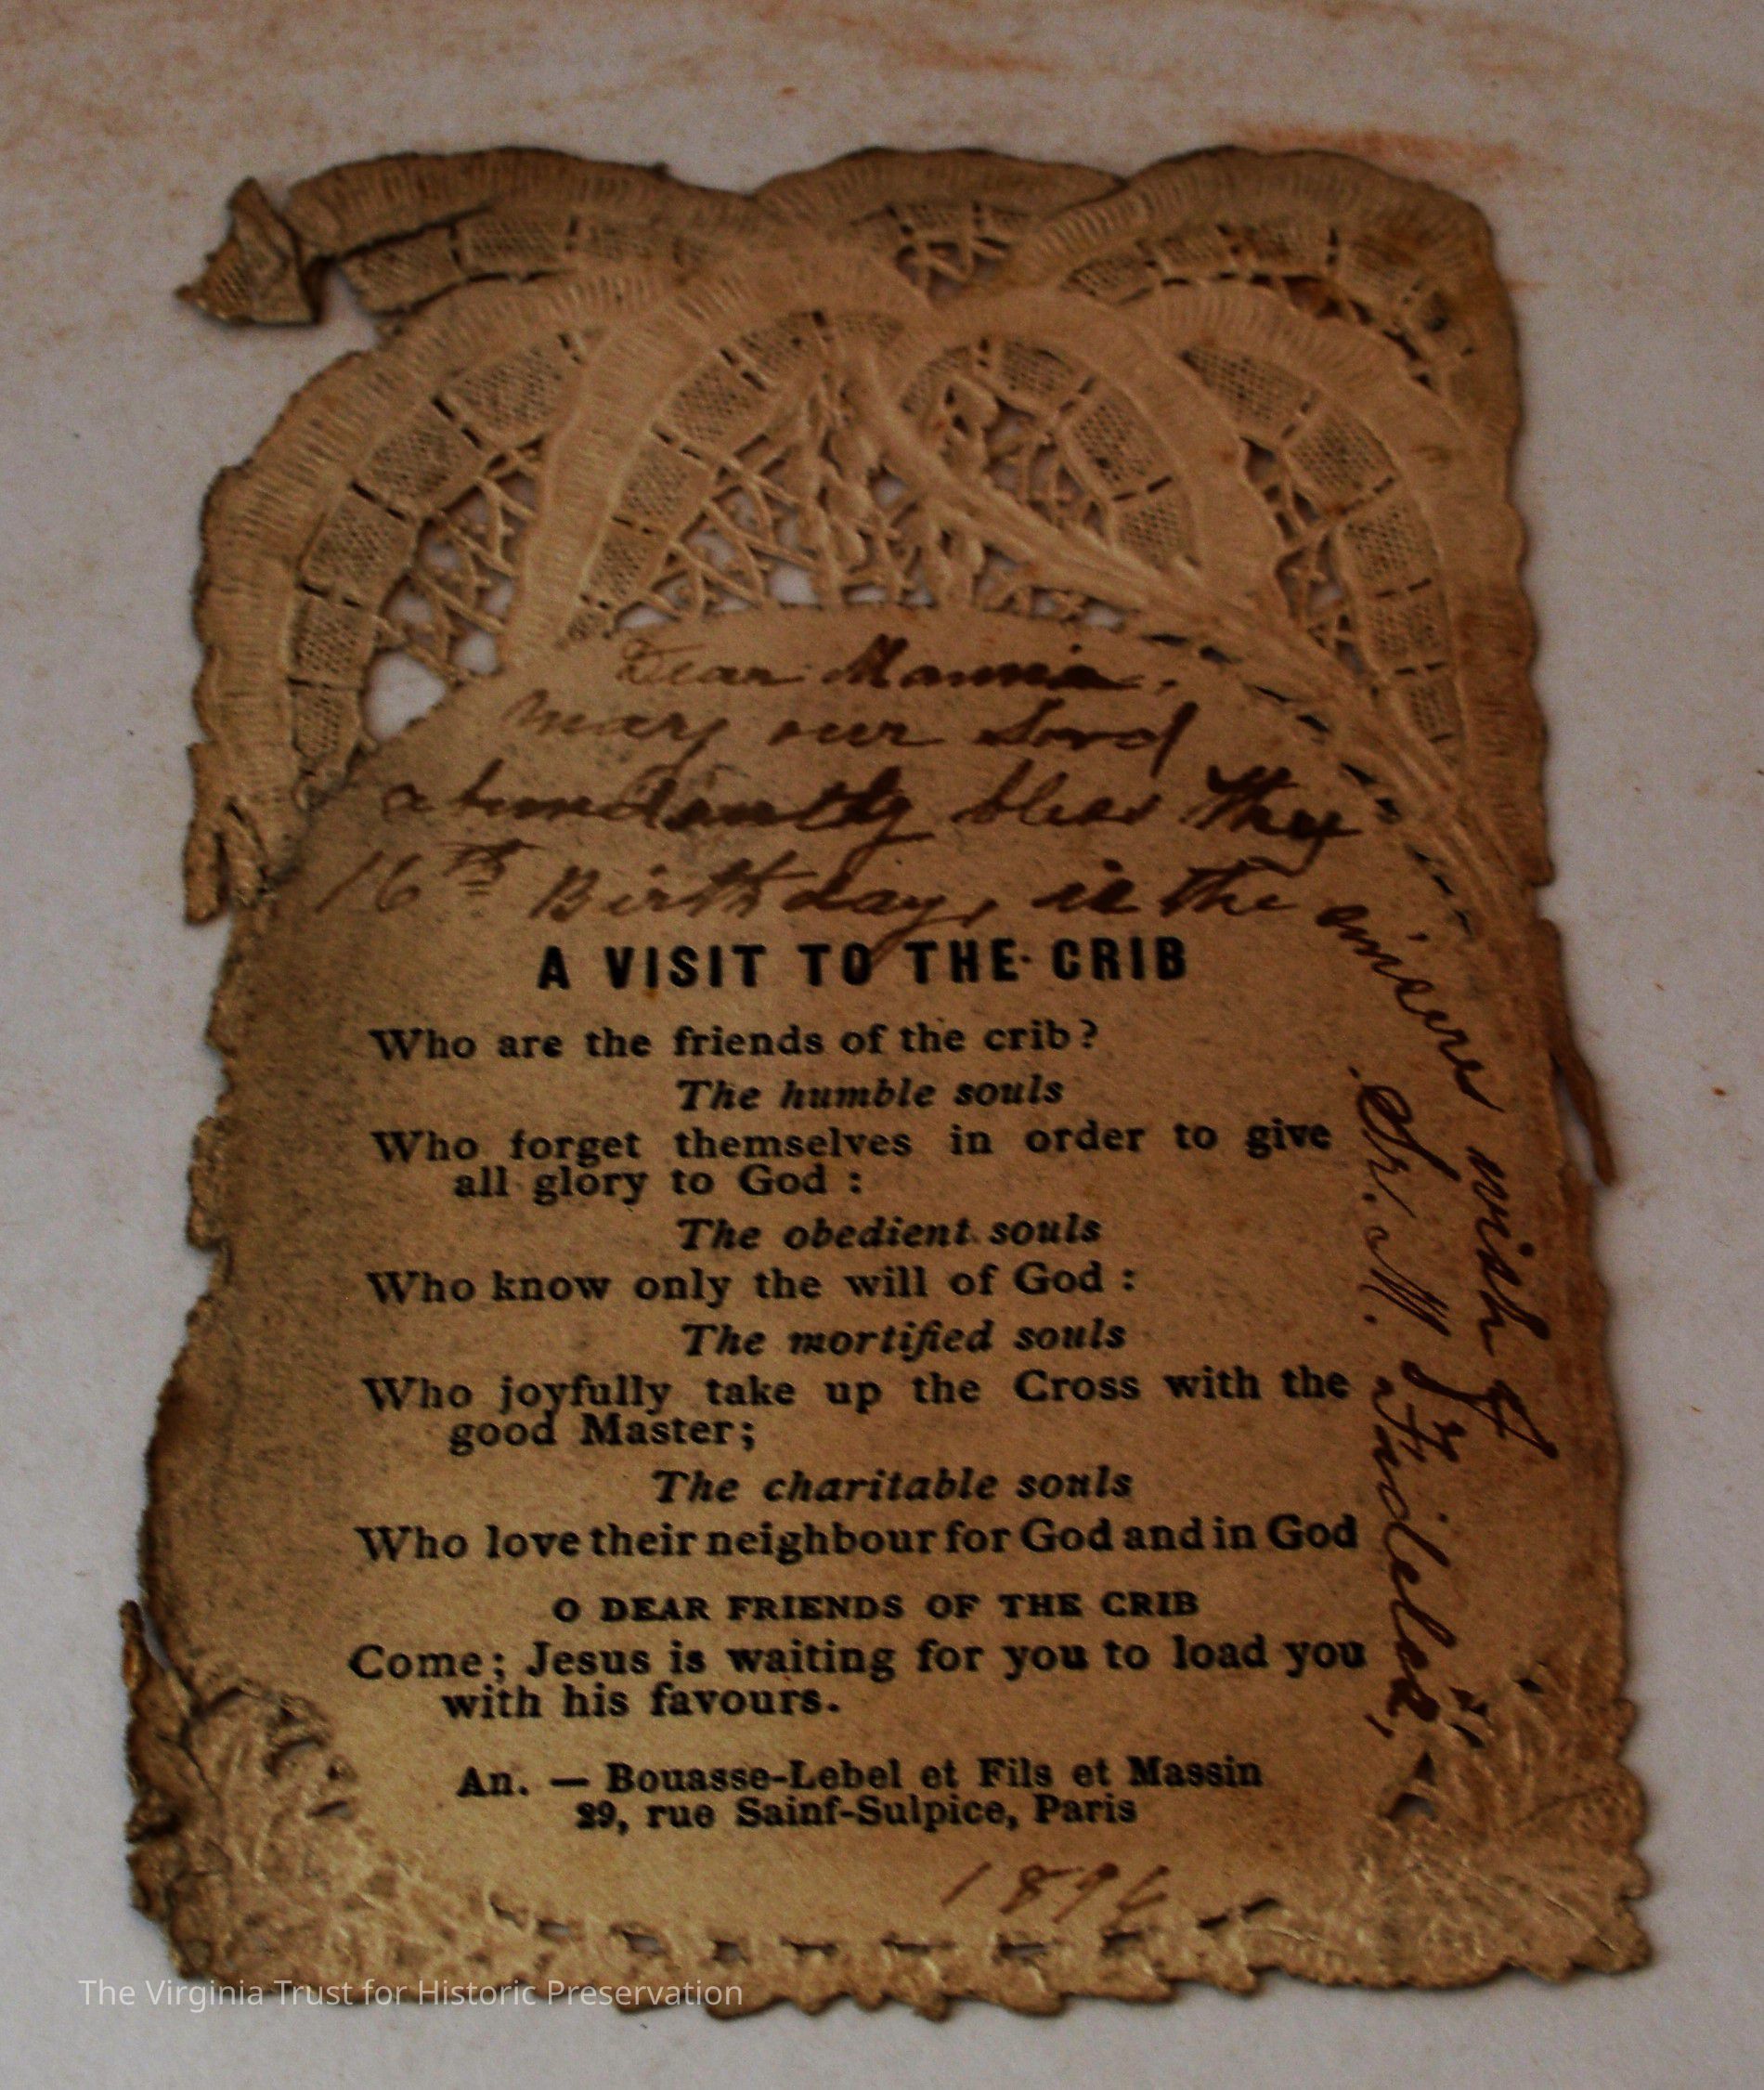 Dear Mamie,
may our Lord
abundantly bless thy
16th Birthday, is the
sincere wish of
Sr. M. Fidelis,
A VISIT TO THE CRIB
Who are the friends of the crib?
The humble souls
Who forget themselves in order to give
all glory to God :
The obedient souls
Who know only the will of God :
The mortified souls
Who joyfully take up the Cross with the
good Master;
The charitable souls
Who love their neighbour for God and in God
O DEAR FRIENDS OF THE CRIB
Come; Jesus is waiting for you to load you
with his favours.
An. — Bouasse-Lebel et Fils et Massin
29, rue Sainf-Sulpice, Paris
The Virginia Trust for Historic Preservation